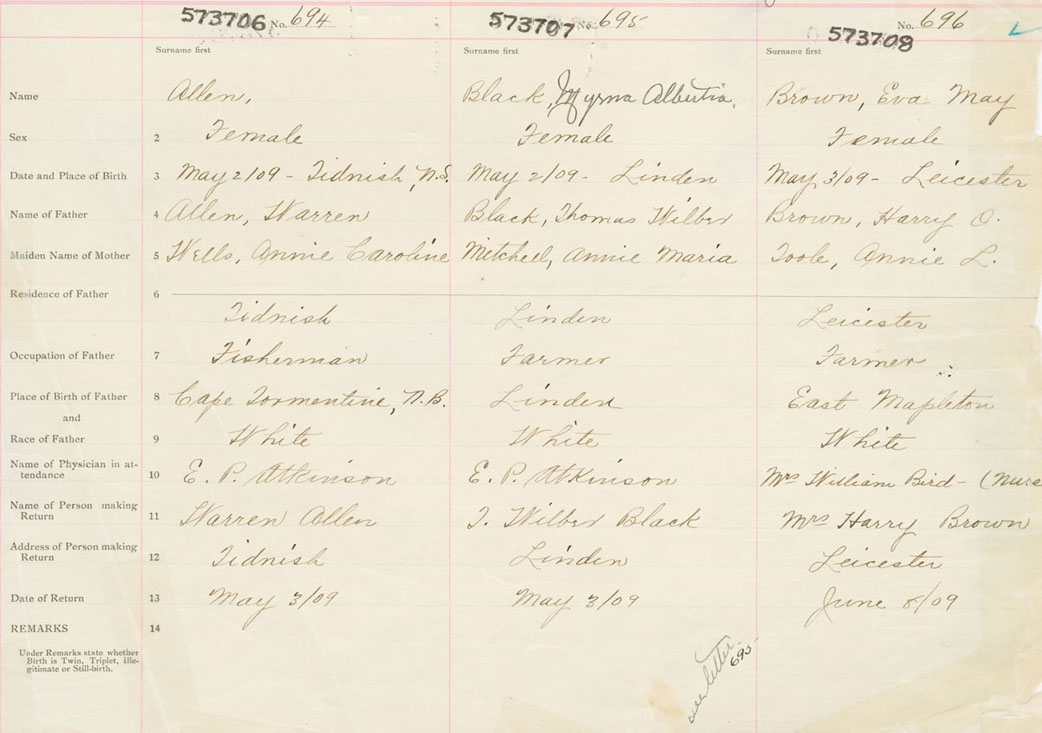 573706 No. 694 573707 No. 695 573708 No. 696
Surname first Surname first Surname first
Name Allen, Black, Myrna Albertia, Brown, Eva May
Sex 2 Female Female Female
Date and Place of Birth 3 May 2/09 - Tidnish, N.S. May 2/09 - Linden May 3/09 - Leicester
Name of Father 4 Allen, Warren Black, Thomas Wilber Brown, Harry O.
Maiden Name of Mother 5 Wells, Annie Caroline Mitchell, Annie Maria Toole, Annie L.
Residence of Father 6
Tidnish Linden Leicester
Occupation of Father 7 Fisherman Farmer Farmer
Place of Birth of Father 8 Cape Tormentine, N.B. Linden East Mapleton
and
Race of Father 9 White White White
Name of Physician in at-
tendance 10 E. P. Atkinson E. P. Atkinson Mrs William Bird - (Nurs
Name of Person making
Return 11 Warren Allen T. Wilber Black Mrs Harry Brown
Address of Person making
Return 12 Tidnish Linden Leicester
Date of Return 13 May 3/09 May 3/09 June 8/09
REMARKS 14
Under Remarks state whether
Birth is Twin, Triplet, Ille-
gitimate or Still-birth.
see letter
695